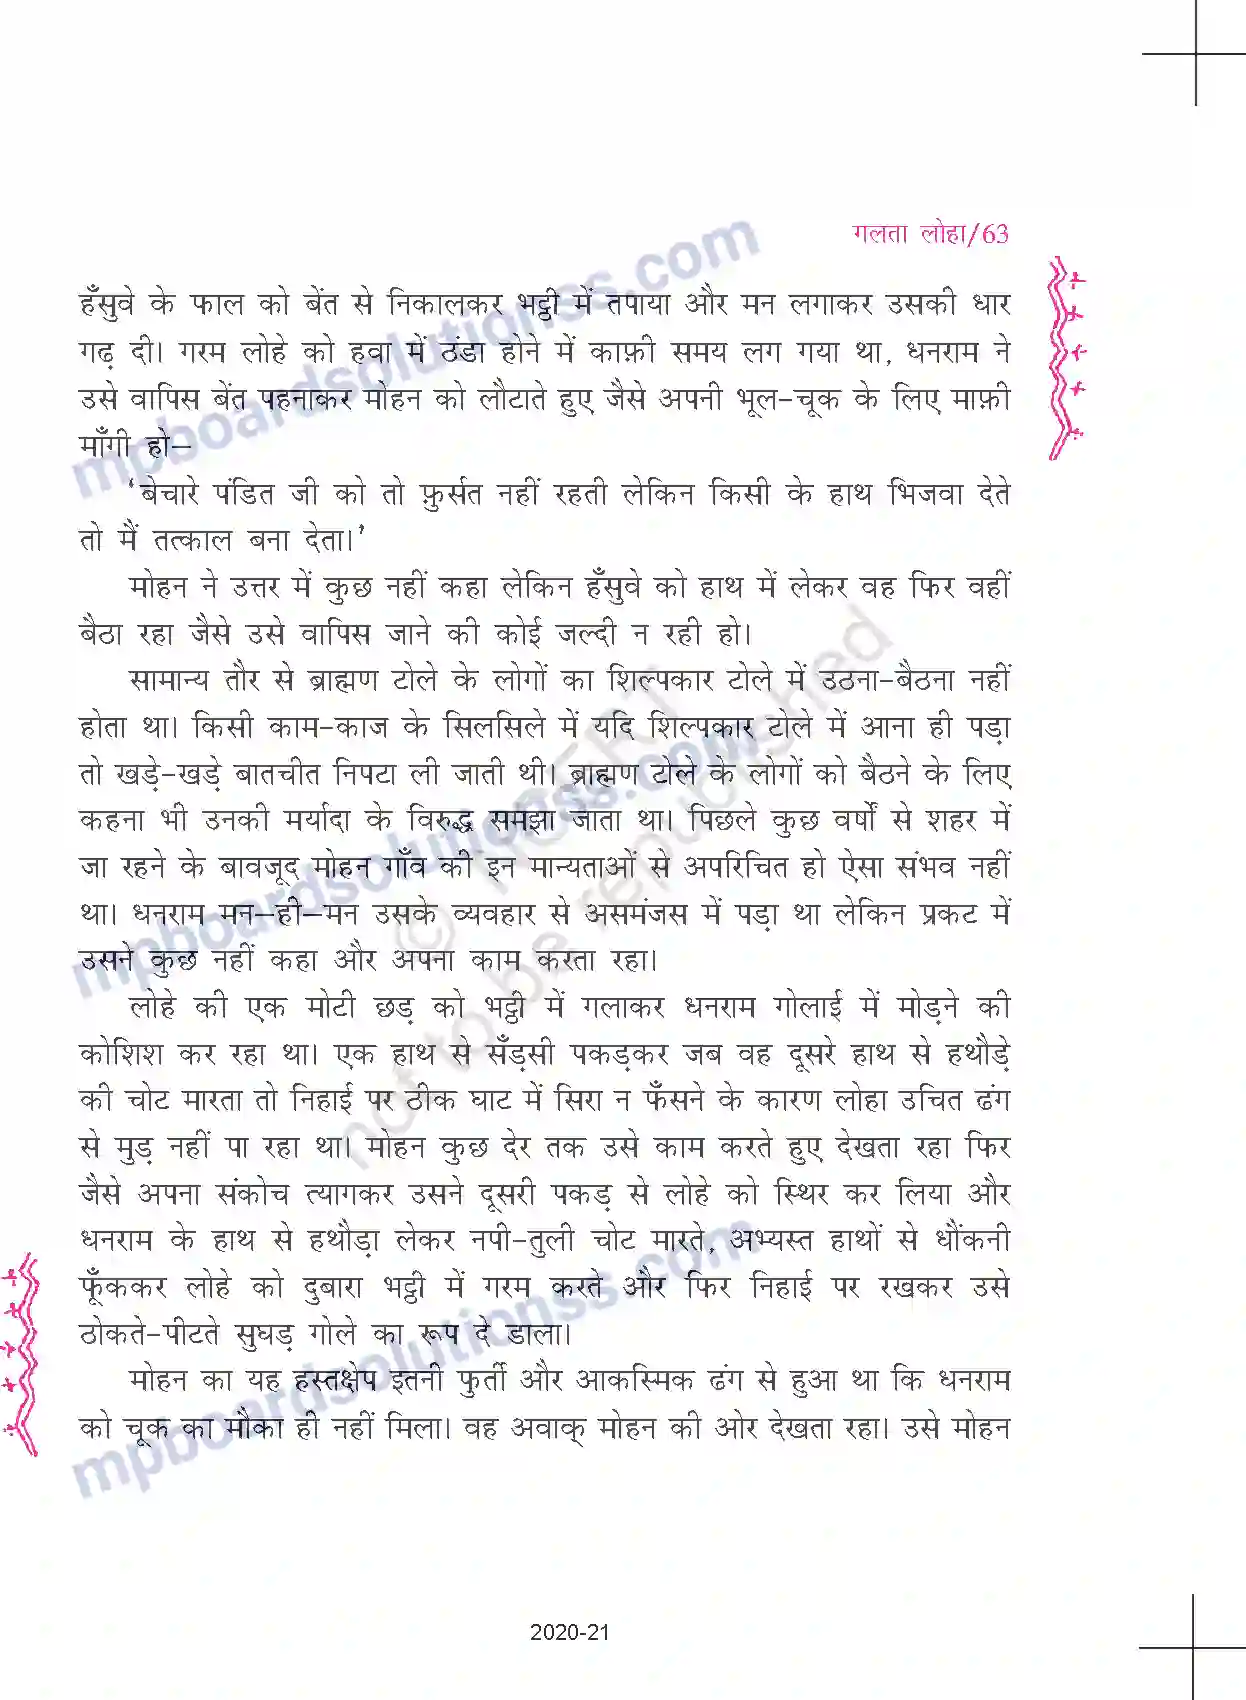 गलता लोहा/63
हँसुवे के फाल को बेंत से निकालकर भट्ठी में तपाया और मन लगाकर उसकी धार
गढ़ दी। गरम लोहे को हवा में ठंडा होने में काफ़ी समय लग गया था, धनराम ने
उसे वापिस बेंत पहनाकर मोहन को लौटाते हुए जैसे अपनी भूल-चूक के लिए माफ़ी
माँगी हो—
‘बेचारे पंडित जी को तो फ़ुर्सत नहीं रहती लेकिन किसी के हाथ भिजवा देते
तो मैं तत्काल बना देता।’
मोहन ने उत्तर में कुछ नहीं कहा लेकिन हँसुवे को हाथ में लेकर वह फिर वहीं
बैठा रहा जैसे उसे वापिस जाने की कोई जल्दी न रही हो।
सामान्य तौर से ब्राह्मण टोले के लोगों का शिल्पकार टोले में उठना-बैठना नहीं
होता था। किसी काम-काज के सिलसिले में यदि शिल्पकार टोले में आना ही पड़ा
तो खड़े-खड़े बातचीत निपटा ली जाती थी। ब्राह्मण टोले के लोगों को बैठने के लिए
कहना भी उनकी मर्यादा के विरुद्ध समझा जाता था। पिछले कुछ वर्षों से शहर में
जा रहने के बावजूद मोहन गाँव की इन मान्यताओं से अपरिचित हो ऐसा संभव नहीं
था। धनराम मन—ही—मन उसके व्यवहार से असमंजस में पड़ा था लेकिन प्रकट में
उसने कुछ नहीं कहा और अपना काम करता रहा।
लोहे की एक मोटी छड़ को भट्ठी में गलाकर धनराम गोलाई में मोड़ने की
कोशिश कर रहा था। एक हाथ से सँड़सी पकड़कर जब वह दूसरे हाथ से हथौड़े
की चोट मारता तो निहाई पर ठीक घाट में सिरा न फँसने के कारण लोहा उचित ढंग
से मुड़ नहीं पा रहा था। मोहन कुछ देर तक उसे काम करते हुए देखता रहा फिर
जैसे अपना संकोच त्यागकर उसने दूसरी पकड़ से लोहे को स्थिर कर लिया और
धनराम के हाथ से हथौड़ा लेकर नपी-तुली चोट मारते, अभ्यस्त हाथों से धौंकनी
फूँककर लोहे को दुबारा भट्ठी में गरम करते और फिर निहाई पर रखकर उसे
ठोकते-पीटते सुघड़ गोले का रूप दे डाला।
मोहन का यह हस्तक्षेप इतनी फुर्ती और आकस्मिक ढंग से हुआ था कि धनराम
को चूक का मौका ही नहीं मिला। वह अवाक् मोहन की ओर देखता रहा। उसे मोहन
2020-21
mpboardsolutionss.com
mpboardsolutionss.com
mpboardsolutionss.com
© NCERT
not to be republished